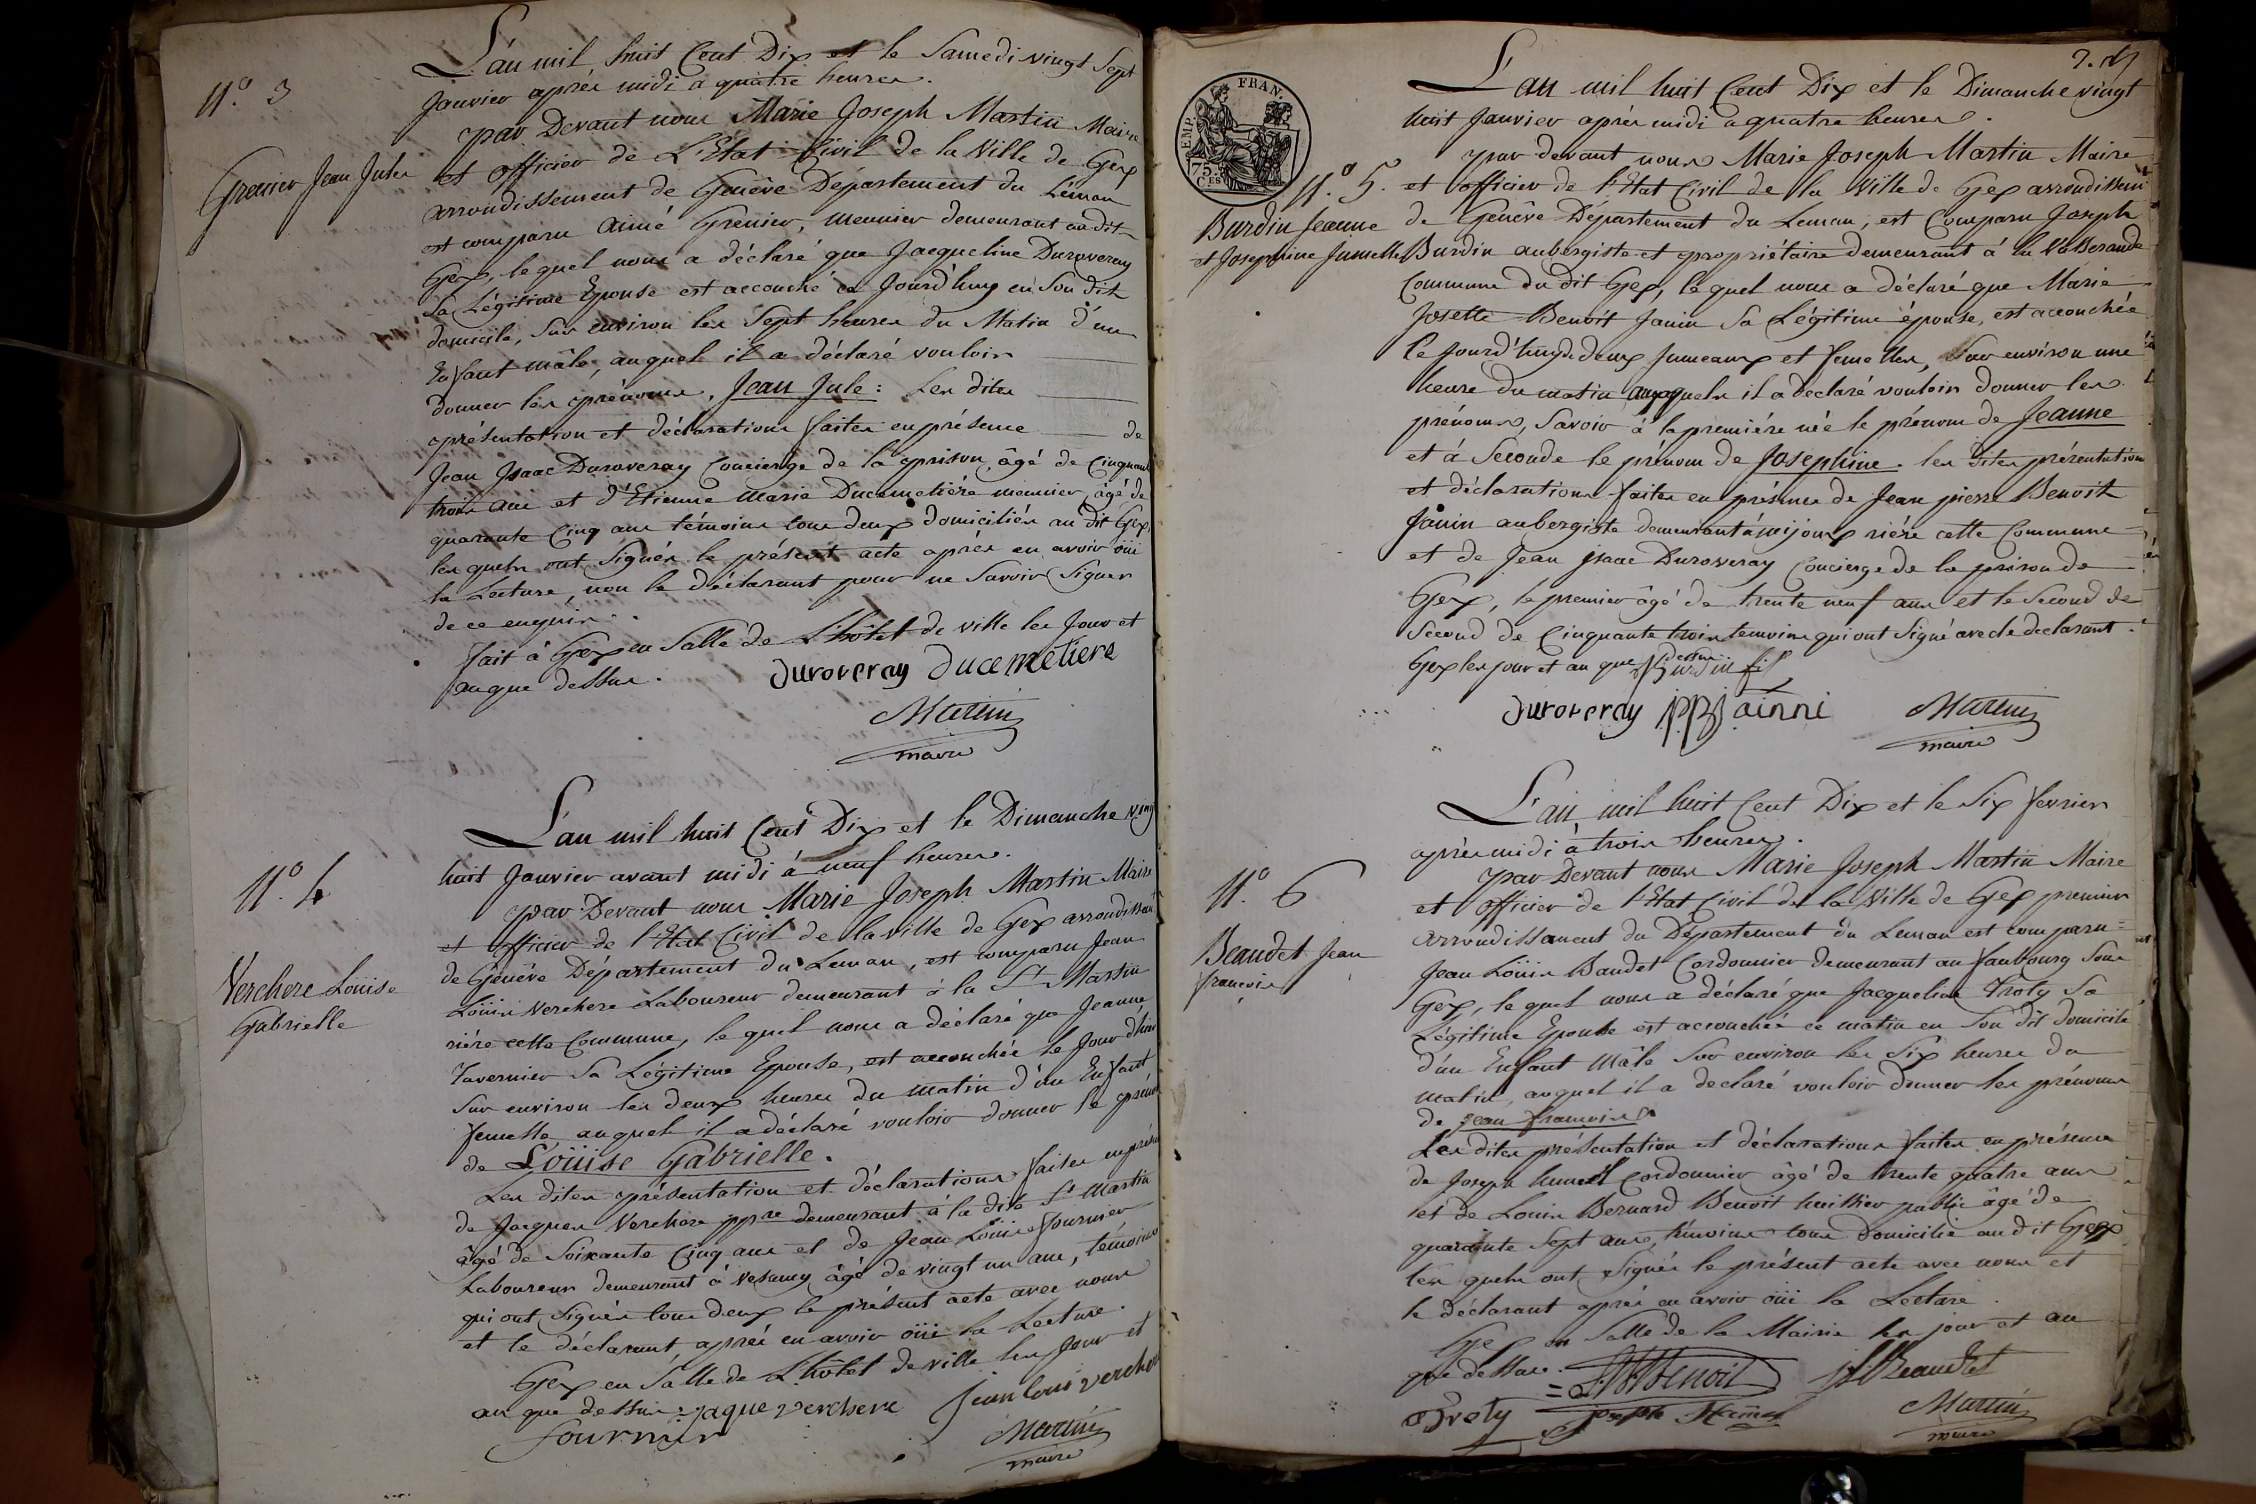 N.° 3
Grenier Jean Jule
L'an mil huit Cent Dix et le Samedi vingt Sept
Janvier après midi a quatre heures.
par Devant nous Marie Joseph Martin Maire
et officier de L'Etat Civil de la Ville de Gex
arrondissement de Genève Département du Léman
est comparu Aimé Grenier, meunier demeurant audit
Gex, lequel nous a déclaré que Jacqueline Duroveray
Sa Légitime Epouse est accouché ce Jourd'huy en Son dit
domicile, Sur environ les Sept heures du Matin d'un
Enfant mâle, auquel il a déclaré vouloir
donner les prénoms, Jean Jule : Les dites
présentation et déclarations faites en présence de
Jean Isaac Duroveray Concierge de la prison, âgé de Cinquante
trois ans et d'Etienne Marie Ducemetière meunier, âgé de
quarante Cinq ans témoins tous deux domiciliés au dit Gex,
les quels ont Signés le présent acte après en avoir oüi
la Lecture, non le déclarant pour ne Savoir Signer
de ce enquis.
fait à Gex en Salle de L'hôtel de ville les Jour et
an que dessus.
Duroveray Ducemetiere
Martin
maire
N.° 4
Verchere Loüise
Gabrielle
L'an mil huit Cent Dix et le Dimanche vingt
huit Janvier avant midi à neuf heures.
par Devant nous Marie Joseph Martin Maire
et officier de l'Etat Civil de la ville de Gex arrondissent
de Genève Département du Leman, est comparu Jean
Loüis Verchere Laboureur demeurant à la St Martin
rière cette Commune, le quel nous a déclaré que Jeanne
Tavernier Sa Légitime Epouse, est accouchée le Jour d'hui
Sur environ les deux heures du matin d'un Enfant
femelle auquel il a déclaré vouloir donner le prénom
de Loüise Gabrielle.
Les dites présentation et déclarations faites en présence
de Jacques Verchere ppre demeurant à la dite St Martin
âgé de Soixante Cinq ans et de Jean Loüis Fournier
Laboureur demeurant à Vesancy âgé de vingt un ans, témoins
qui ont Signés tous deux le présent acte avec nous
et le déclarant, après en avoir oüi la Lecture.
Gex en Salle de L'hôtel de ville les Jour et
an que dessus. Jaque Verchere Jean Loui Verchere
Fournier
Martin
maire
EMP. FRAN.
75.
Ces
N.° 5.
Burdin Jeanne
et Josephine Jumelle
L'an mil huit Cent Dix et le Dimanche vingt
huit Janvier après midi a quatre heures.
par devant nous Marie Joseph Martin Maire
et officier de l'Etat Civil de la Ville de Gex arrondissent
de Genève Département du Leman, est Comparu Joseph
Burdin aubergiste et propriétaire demeurant à la
Commune du dit Gex, lequel nous a déclaré que Marie
Josette Benoit Janin Sa Légitime épouse, est accouchée
le Jourd'huy de deux Jumeaux et femelles, Sur environ une
heure du matin auxquels il a déclaré vouloir donner les
prénoms, Savoir à la première née le prénom de Jeanne
et à Seconde le prénom de Josephine. les dites présentation
et déclarations faites en présence de Jean pierre Benoit
Janin aubergiste demeurant à rière cette Commune
et de Jean Isaac Duroveray Concierge de la prison de
Gex, le premier âgé de trente neuf ans et le Second de
Second de Cinquante trois temoins qui ont Signé avec le declarant.
Gex les jour et an que dessus Burdin
Duroveray JPBJainni
Martin
maire
N.° 6
Beaudet Jean
françois
L'an mil huit Cent Dix et le Six fevrier
après midi à trois heures.
par Devant nous Marie Joseph Martin Maire
et officier de l'Etat Civil de la Ville de Gex premier
arrondissement du Département du Leman est comparu
Jean Loüis Baudet Cordonnier demeurant au faubourg Sous
Gex, le quel nous a déclaré que Jacqueline Troty Sa
Légitime Epouse est accouchée ce matin en Son dit domicile
d'un Enfant Mâle Sur environ les Six heures du
matin, auquel il a déclaré vouloir donner les prénoms
de Jean françois
Les dites présentation et déclarations faites en présence
de Joseph Cordonnier âgé de trente quatre ans
et de Louis Bernard Benoit huissier public âgé de
quarante Sept ans, témoins tous domicilié audit Gex
les quels ont Signés le présent acte avec nous et
le déclarant après en avoir oüi la Lecture.
Gex en Salle de la Mairie les jour et an
que dessus. Benoit Beaudet
Joseph
Martin
maire